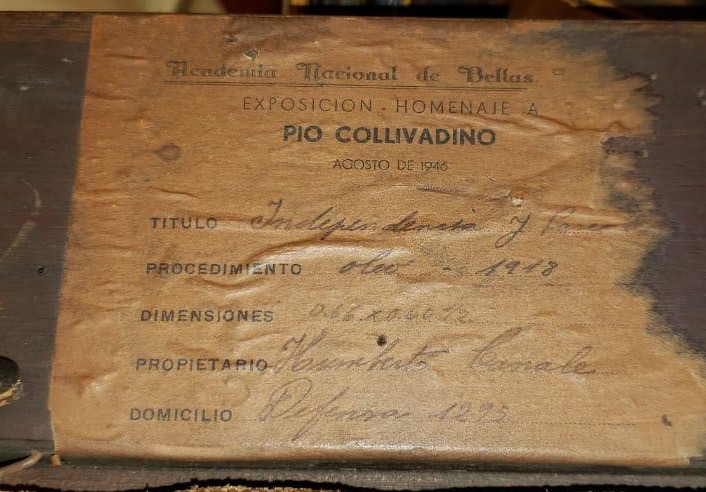 Academia Nacional de Bellas
EXPOSICION - HOMENAJE A
PIO COLLIVADINO
AGOSTO DE 1946
TITULO Independencia y
PROCEDIMIENTO oleo - 1918
DIMENSIONES
PROPIETARIO Humberto Canale
DOMICILIO Defensa 1295